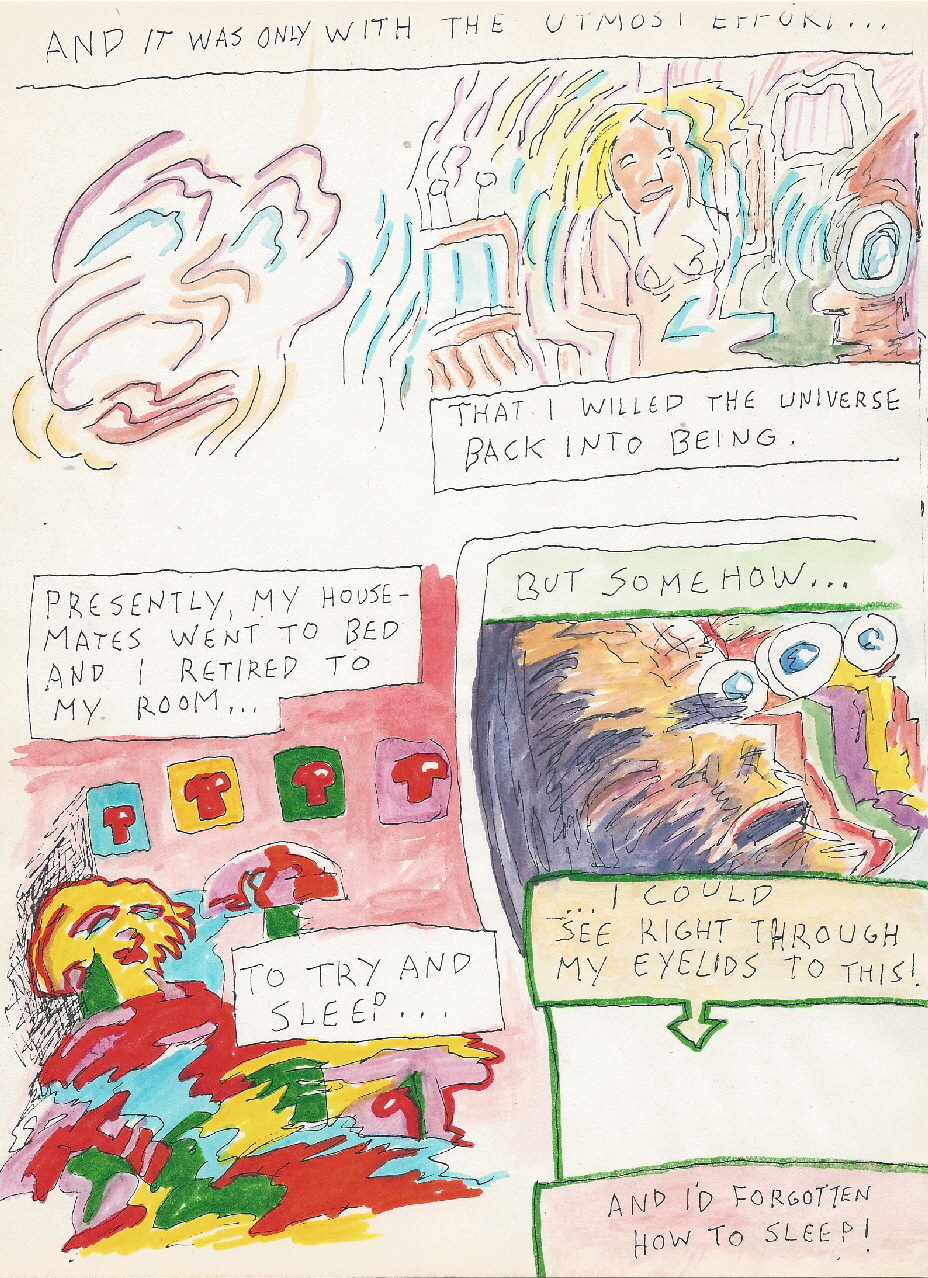 AND IT WAS ONLY WITH THE UTMOST EFFORT...
THAT I WILLED THE UNIVERSE
BACK INTO BEING.
PRESENTLY, MY HOUSE-
MATES WENT TO BED
AND I RETIRED TO
MY ROOM...
TO TRY AND
SLEEP...
BUT SOMEHOW...
...I COULD
SEE RIGHT THROUGH
MY EYELIDS TO THIS!
AND I'D FORGOTTEN
HOW TO SLEEP!